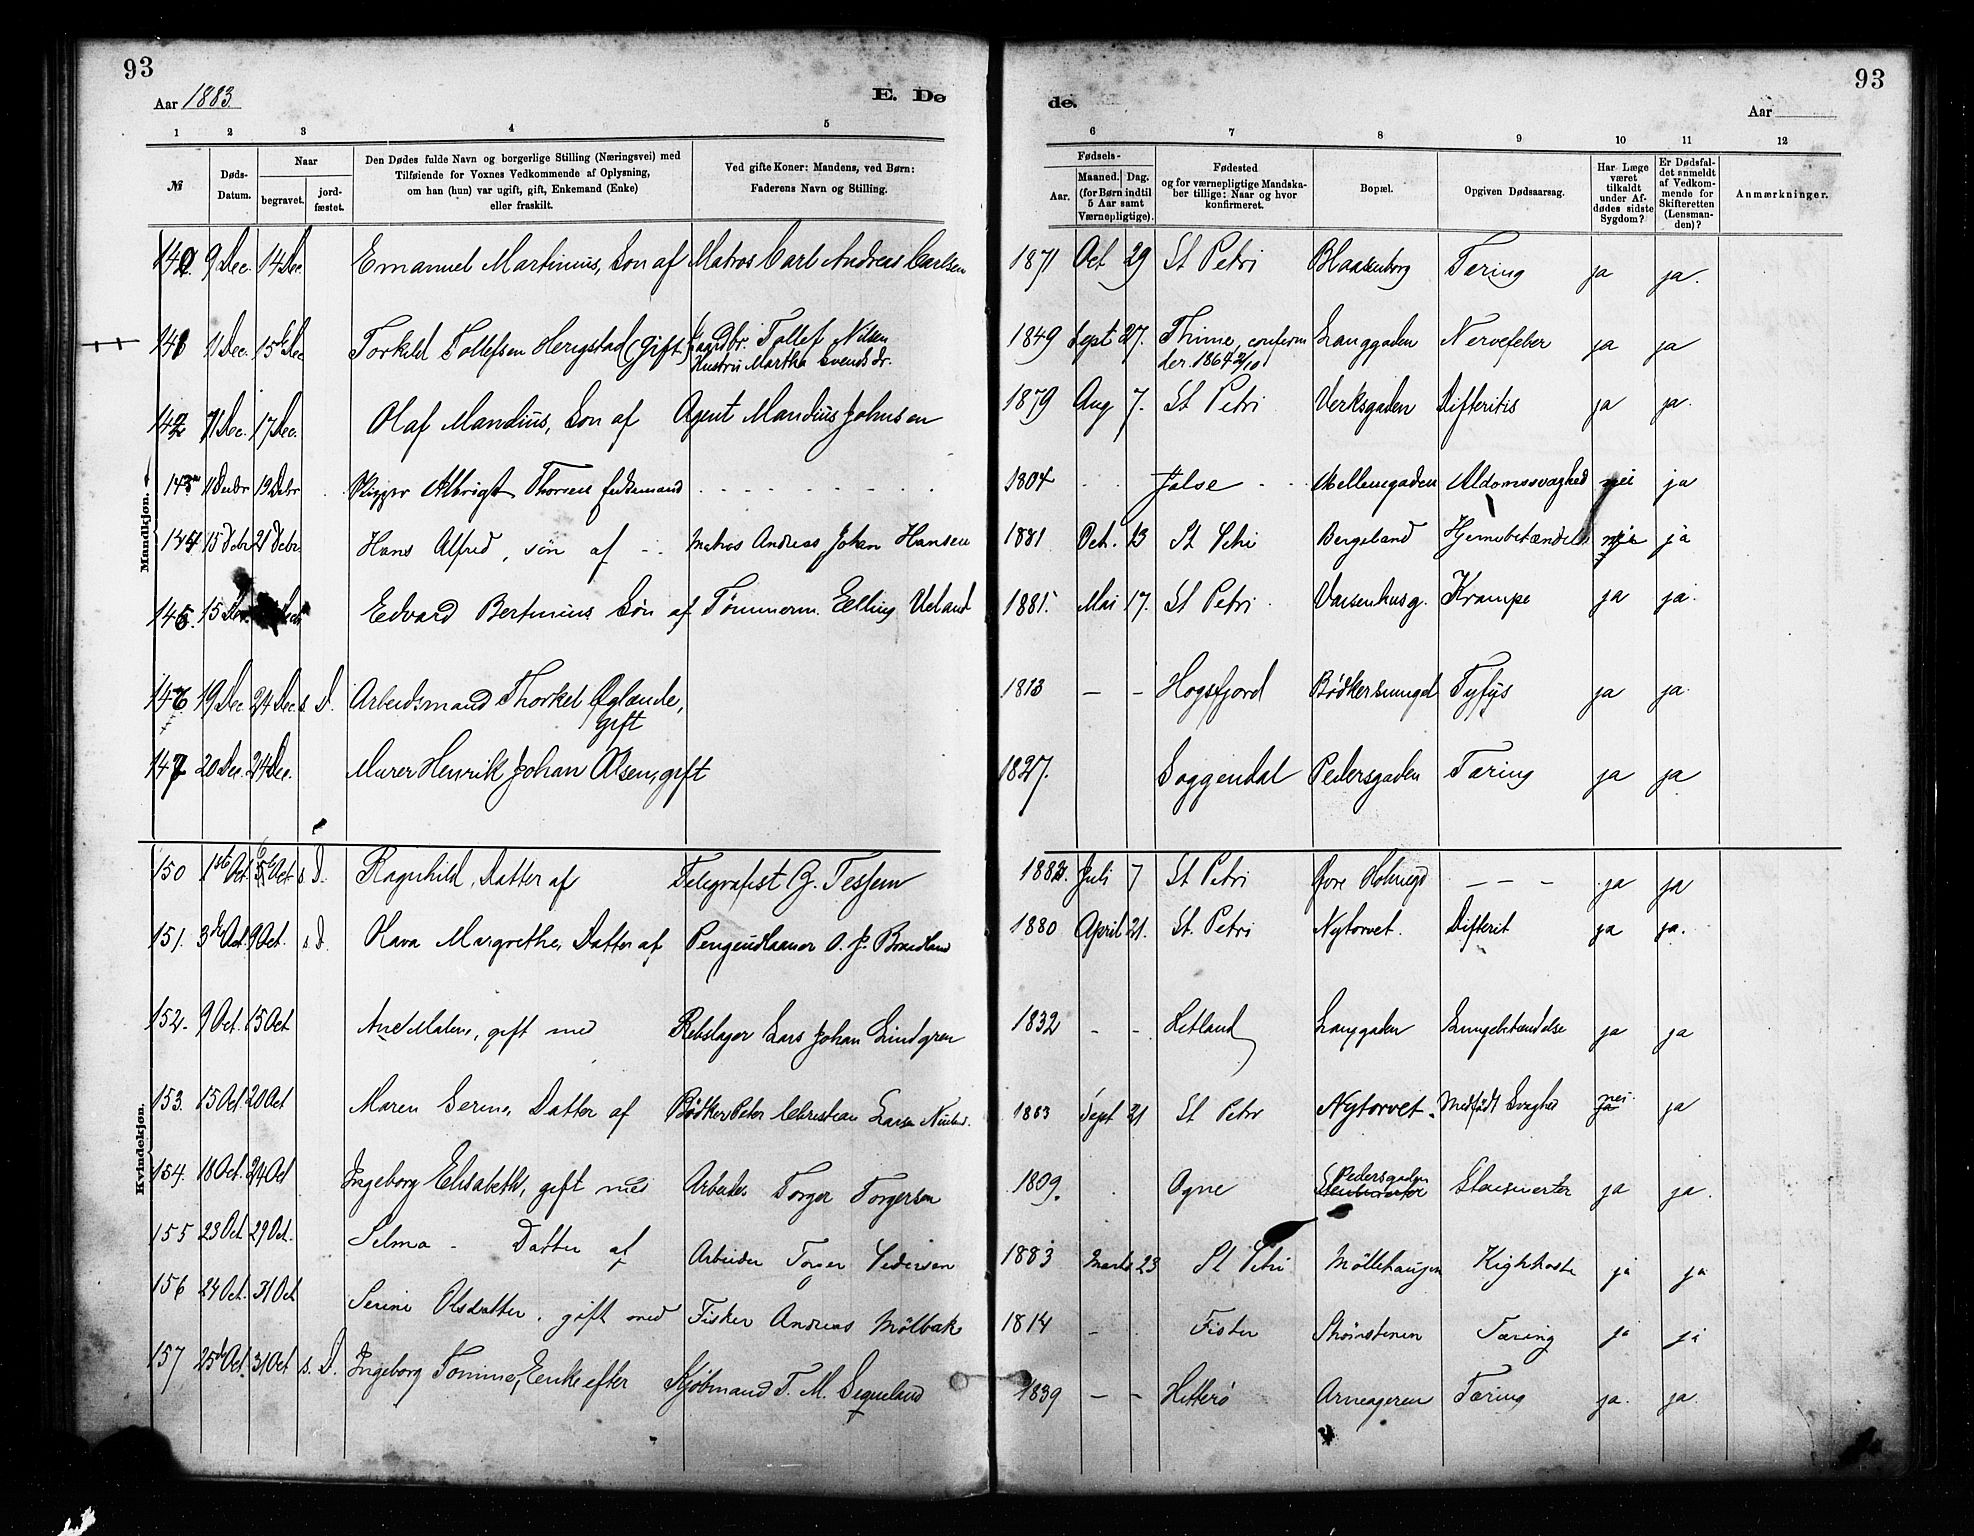 93
93
Aar 1883.
E. Dø
de.
Aar
1 2 3 4 5 6 7 8 9 10 11 12
№
Døds-Datum.
Naar
begravet.
jord-fæstet.
Den Dødes fulde Navn og borgerlige Stilling (Næringsvei) med
Tilføiende for Voxnes Vedkommende af Oplysning,
om han (hun) var ugift, gift, Enkemand (Enke)
eller fraskilt.
Ved gifte Koner: Mandens, ved Børn:
Faderens Navn og Stilling.
Fødsels-
Aar.
Maaned. Dag.
(for Børn indtil
5 Aar samt
Værnepligtige).
Fødested
og for værnepligtige Mandska-
ber tillige: Naar og hvor
konfirmeret.
Bopæl.
Opgiven Dødsaarsag.
Har Læge
været
tilkaldt
under Af-
dødes sidste
Sygdom?
Er Dødsfal-
det anmeldt
af Vedkom-
mende for
Skifteretten
(Lensman-
den)?
Anmærkninger.
Mandkjøn.
140 9 Dec. 14 Dec Emanuel Martinius, Søn af Matros Carl Andreas Carlsen 1871 Oct 29 St Petri Blaasenborg Tæring ja ja.
141 11 Dec. 15de Dec Torkild Tollefsen Herigstad (Gift) Gaardbr. Tollef Nilsen 1849 Sept 27. Thime, confirm Langgaden Nervefeber ja ja
Hustru Martha Svendsdr. der. 1864 2/10
142 11 Dec. 17 Dec. Olaf Mandius, Søn af Agent Mandius Johnsen 1879 Aug 7. St Petri Verksgaden Difteritis ja ja.
143 11 Decbr 19 Decbr Skipper Albrigt Thorsen Enkemand 1804 Jalse Mellemgaden Aldomssvaghed nei ja
144 15 Debr 21 Debr Hans Alfred, søn af Matros Andreas Johan Hansen 1881 Oct. 13 St Petri Bergeland Hjernebetændelse ja ja
145. 15 Dec Edvard Bertinius Søn af Tømmerm. Elling Ueland 1881. Mai 17. St Petri Vaisenhusg. Krampe ja ja.
146 19 Dec 24 Dec. s. D. Arbeidsmand Thorkel Oglænde, 1813 Høgsfjord Bødkersmuget Tyfys ja ja.
gift
147 20 Dec. 24 Dec. Murer Henrik Johan Olsen, gift 1827. Soggendal Pedersgaden Tæring ja ja
Kvindekjøn.
150 1ste Oct. Oct s. D. Ragnhild, Datter af Telegrafist G. Tessem 1882. Juli 7 St Petri Øvre Holmegd ja ja
151. 3de Oct. 9 Oct. s. D. Olava Margrethe, Datter af 1880 April 21. St. Petri Nytorvet. Difterit ja ja.
152. 9 Oct. 15 Oct Ane Malene, gift med Rebslager Lars Johan Lindgren 1832 Hetland Langgaden Lungebetændelse ja ja
153. 15 Oct. 20 Oct Maren Serine, Datter af Bødker Peter Christian Larsen 1883 Sept 21 St Petri Nytorvet. Medfødt Svaghed nei ja
154. 18 Oct. 24 Oct Ingeborg Elisabeth, gift med Arbeider Torger Torgersen 1809. Ogne Pedersgaden ja ja.
155 23 Oct 29 Oct. Selma - Datter af Arbeider Tomer Pedersen 1883 Marts 23 St Petri Møllehaugen Kighhoste ja ja
156 24 Oct. 31 Oct Serine Olsdatter. gift med Fisker Andreas Mølbak 1814 Fister Strømstenen Tæring ja ja
157 25de Oct. 31 Oct s. D. Ingeborg Tomine, Enke efter Kjøbmand T. M. Segueland 1839 Hitterø Arneageren Tæring ja. ja.